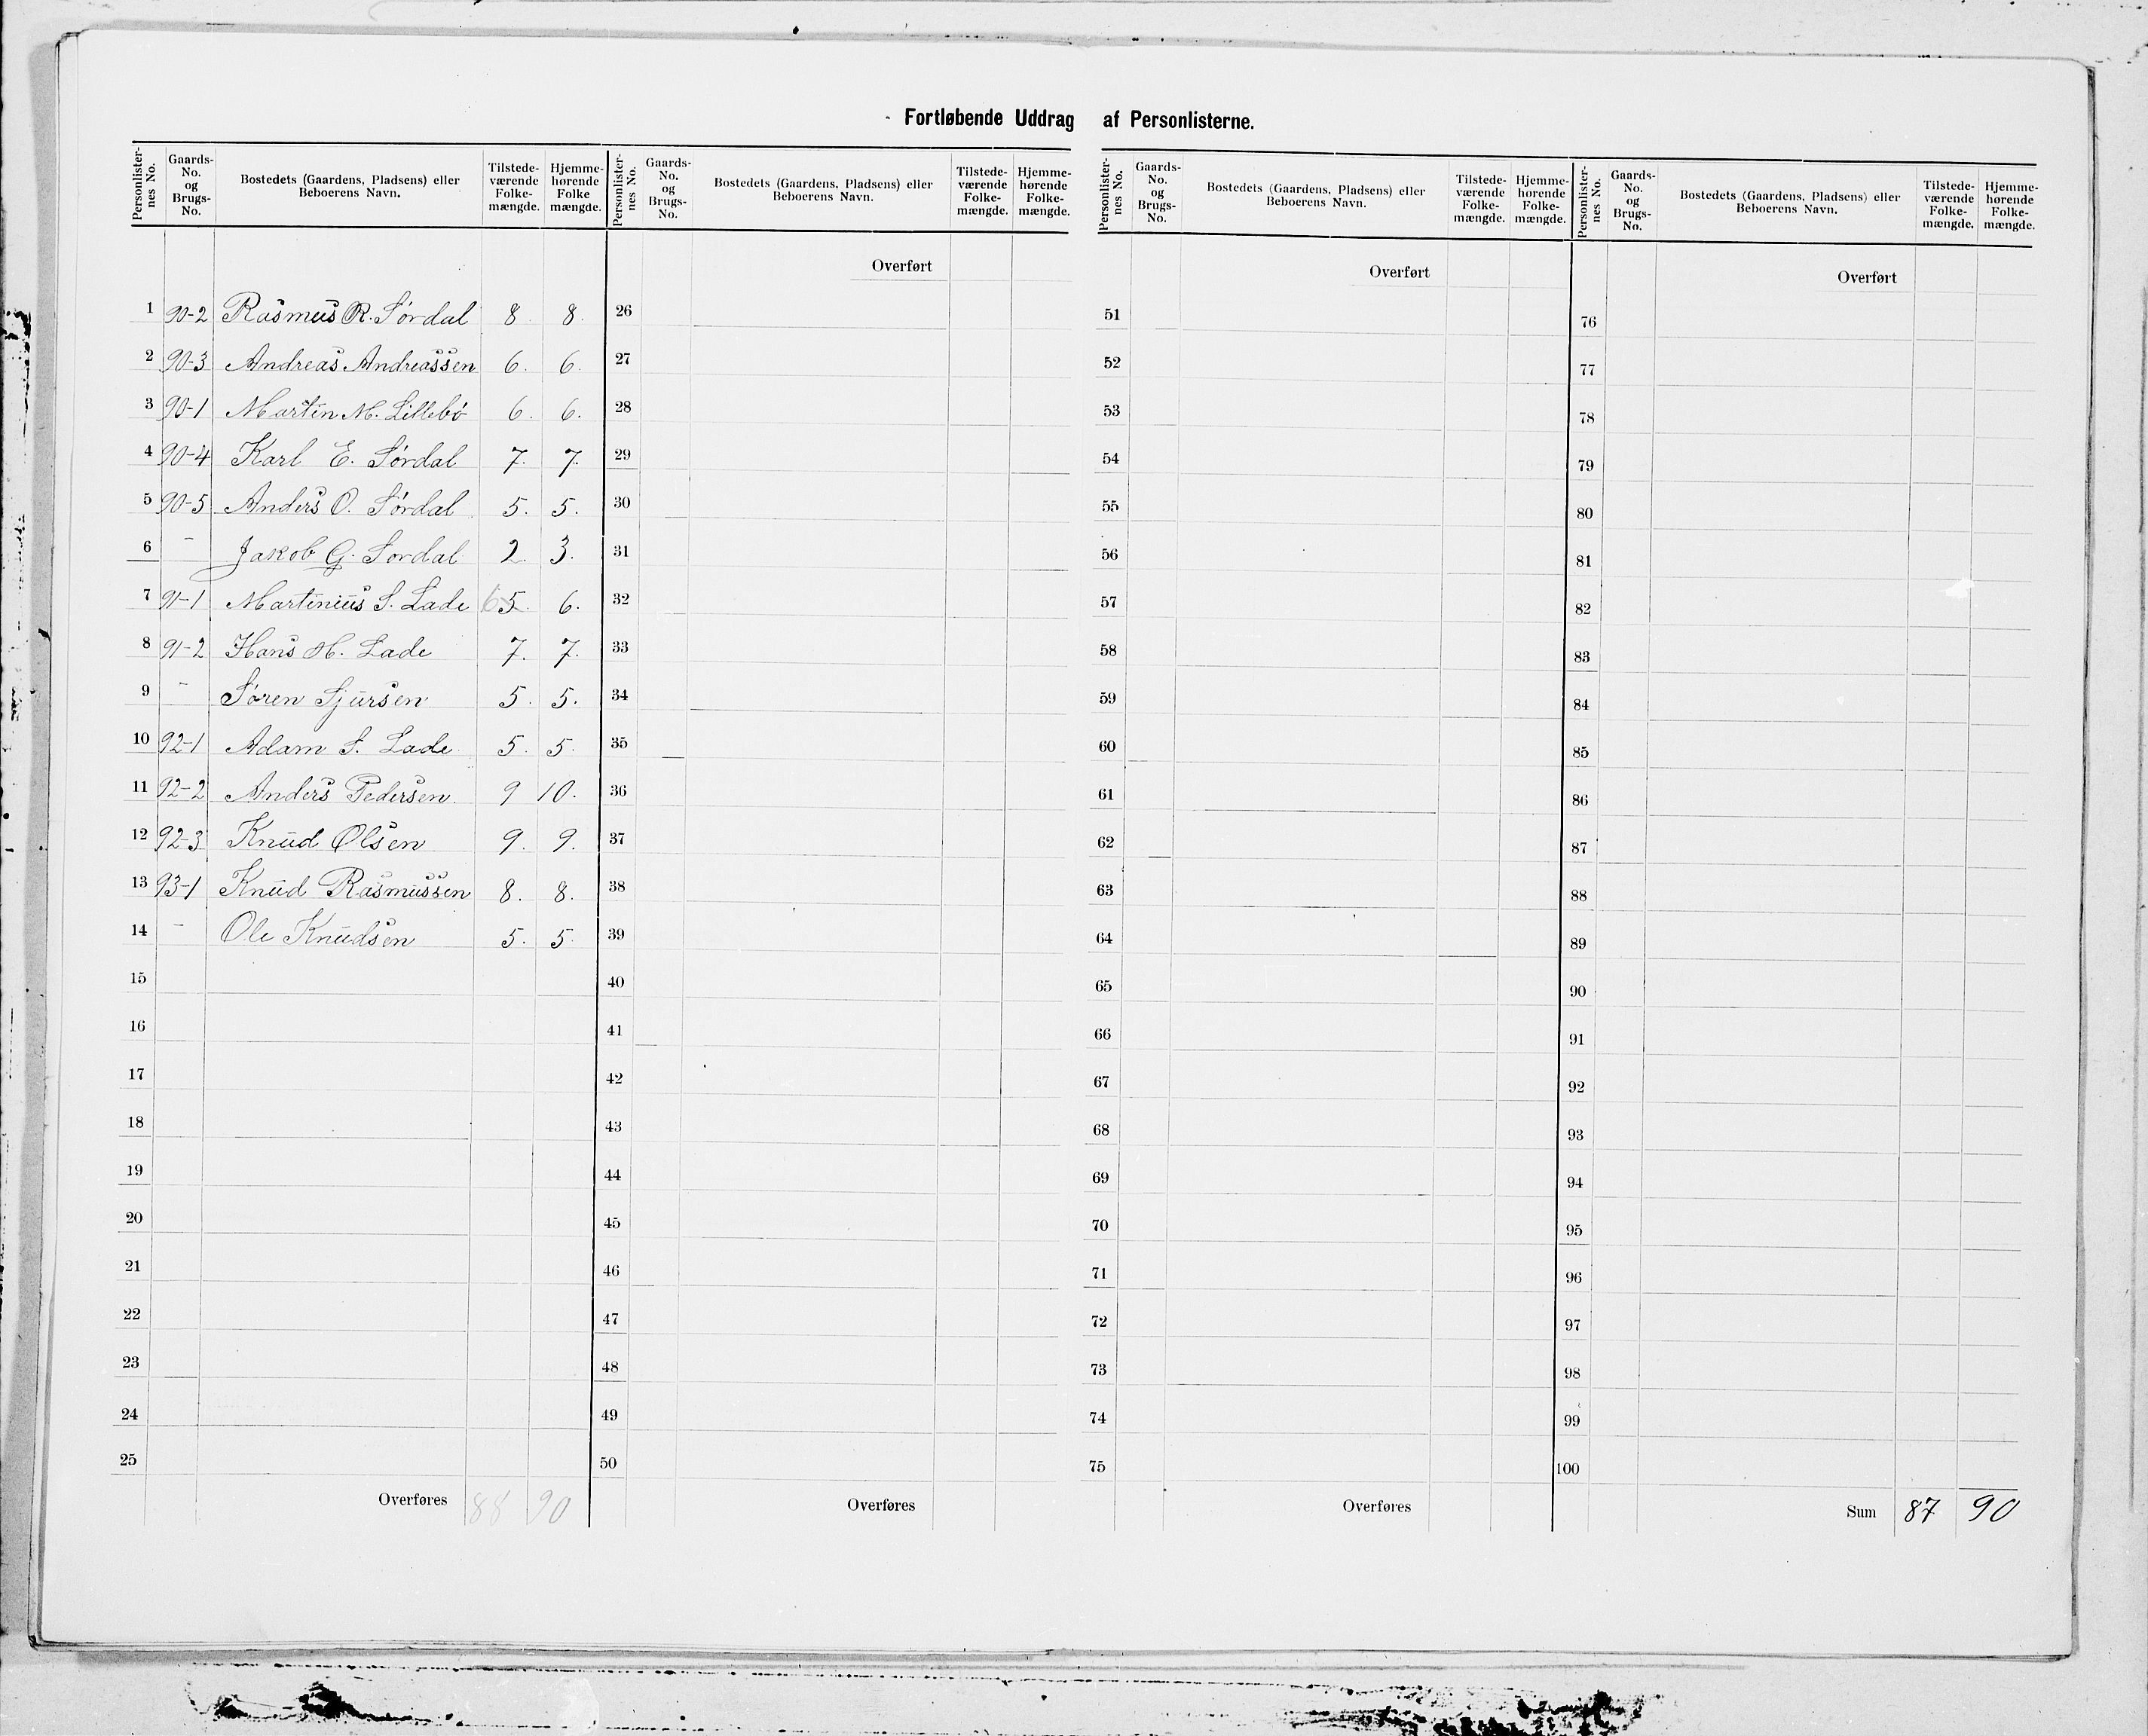 Fortløbende Uddrag af Personlisterne.
Personlister-nes No. Gaards-No. og Brugs-No. Bostedets (Gaardens, Pladsens) eller Beboerens Navn. Tilstede-værende Folke-mængde. Hjemme-hørende Folke mængde.
Personlister-nes No. Gaards-No. og Brugs-No. Bostedets (Gaardens, Pladsens) eller Beboerens Navn. Tilstede-værende Folke-mængde. Hjemme-hørende Folke-mængde.
Personlister-nes No. Gaards-No. og Brugs-No. Bostedets (Gaardens, Pladsens) eller Beboerens Navn. Tilstede-værende Folke-mængde. Hjemme-hørende Folke-mængde.
Personlister-nes No. Gaards-No. og Brugs-No. Bostedets (Gaardens, Pladsens) eller Beboerens Navn. Tilstede-værende Folke-mængde. Hjemme-hørende Folke-mængde.
1 90-2 Rasmus R. Sørdal 8 8.
2 90-3 Andreas Andreassen 6. 6.
3 90-1 Martin M. Lillebø 6. 6.
4 90-4 Karl E. Sørdal 7. 7.
5 90-5 Anders O. Sørdal 5. 5.
6 - Jakob G. Sørdal 2. 3.
7 91-1 Martinius S. Lade 6 5. 6.
8 91-2 Hans M. Lade 7. 7.
9 - Søren Sjursen 5. 5.
10 92-1 Adam S. Lade 5. 5.
11 92-2 Anders Pedersen 9 10.
12 92-3 Knud Olsen 9. 9.
13 93-1 Knud Rasmussen 8. 8.
14 - Ole Knudsen 5. 5.
15
16
17
18
19
20
21
22
23
24
25
Overføres 88 90
Overført
26
27
28
29
30
31
32
33
34
35
36
37
38
39
40
41
42
43
44
45
46
47
48
49
50
Overføres
Overført
51
52
53
54
55
56
57
58
59
60
61
62
63
64
65
66
67
68
69
70
71
72
73
74
75
Overføres
Overført
76
77
78
79
80
81
82
83
84
85
86
87
88
89
90
91
92
93
94
95
96
97
98
99
100
Sum 87 90